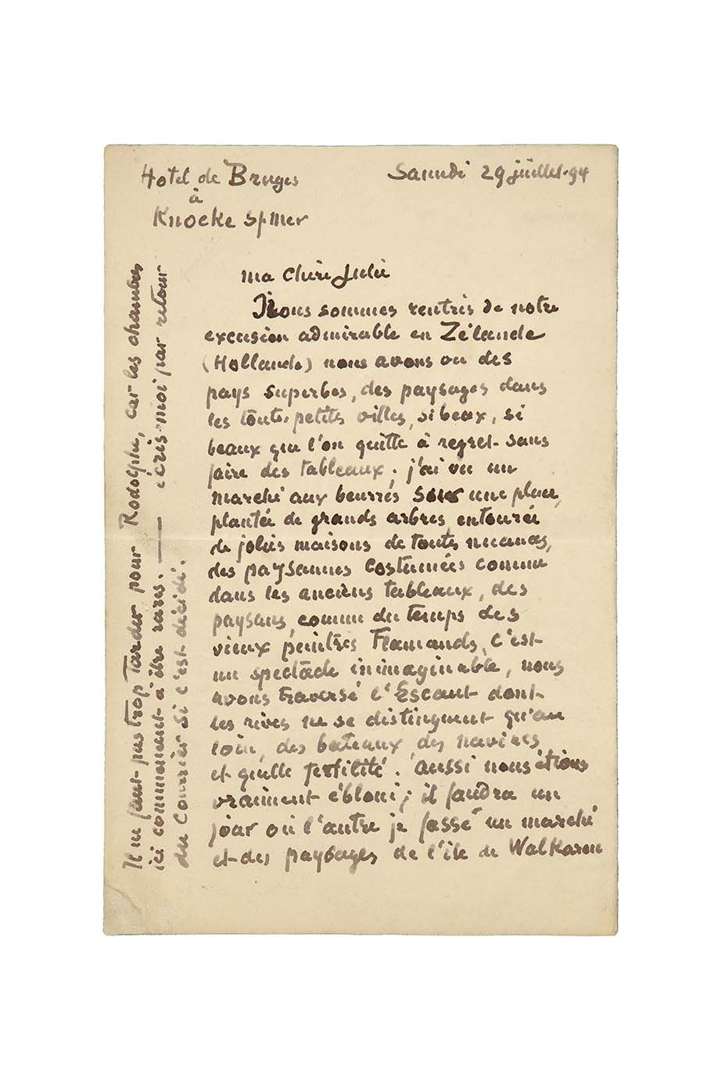 Hotel de Bruges
à
Knocke s/mer
Samedi 29 juillet-94
ma chère Julie
Nous sommes rentrés de notre
excusion admirable en Zélande
(Hollande) nous avons vu des
pays superbes, des paysages dans
les toutes petites villes, si beaux, si
beaux que l'on quitte à regret sans
faire des tableaux; j'ai vu un
marché aux beurres sous une place,
plantée de grands arbres, entourée
de jolies maisons de toutes nuances,
des paysannes costumées comme
dans les anciens tableaux, des
paysans, comme du temps des
vieux peintres Flamands, c'est
un spectacle inimaginable, nous
avons traversé l'Escaut dont
les rives ne se distinguent qu'au
loin, des bateaux des navires
et quelle fertilité. aussi nous étions
vraiment ébloui; il faudra un
jour où l'autre je fasse un marché
et des paysages de l'île de Walkaren
Il ne faut pas trop tarder pour Rodolphe, car les chambres
ici commencent à être rares. — écris-moi par retour
du Courrier si c'est décidé.